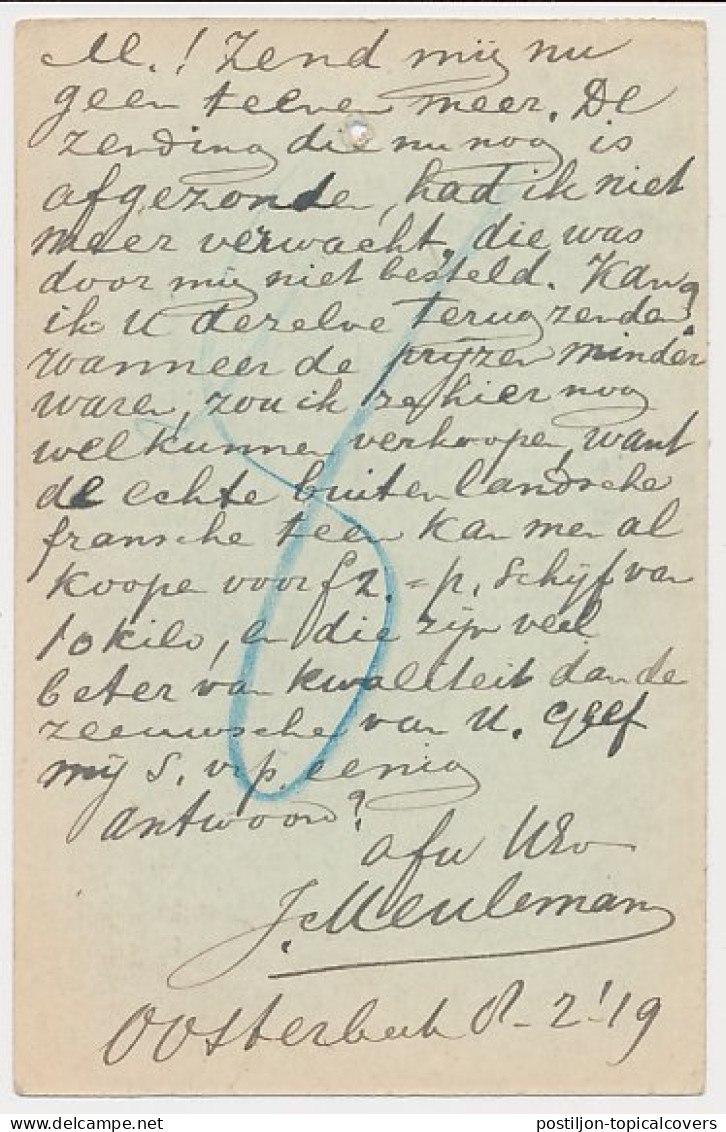 M.! Zend mij nu
geen teenen meer. De
zending die nu nog is
afgezonden, had ik niet
meer verwacht, die was
door mij niet besteld. Kan
ik U dezelve terugzenden?
wanneer de prijzen minder
waren, zou ik ze hier nog
wel kunnen verkoopen, want
de echte buitenlandsche
fransche teen kan men al
koopen voor f 2.= p. Schijf van
10 kilo, en die zijn veel
beter van kwaliteit dan de
zeeuwsche van U. Geef
mij S.v.p. eenig
antwoord?
J. Meuleman
Oosterbeek 8-2'19
postiljon-topicalcovers